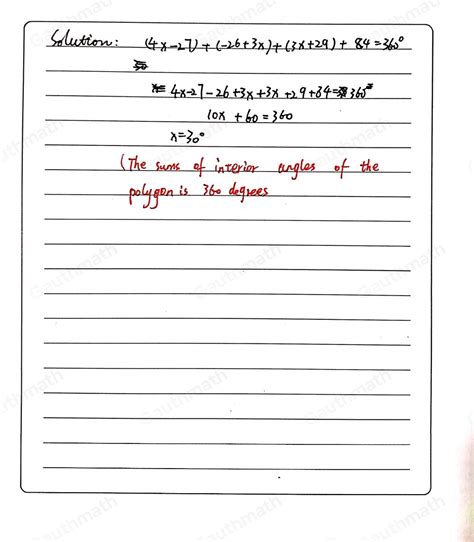 Solution: (4x-27)+(-26+3x)+(3x+29)+84=360°
4x-27-26+3x+3x+29+84=360°
10x+60=360
x=30°
(The sums of interior angles of the
polygon is 360 degrees